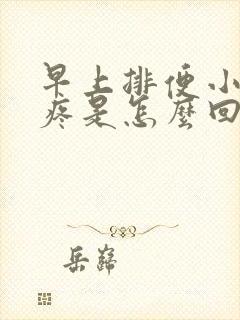 早上排便小
疼是怎麼回
岳巋